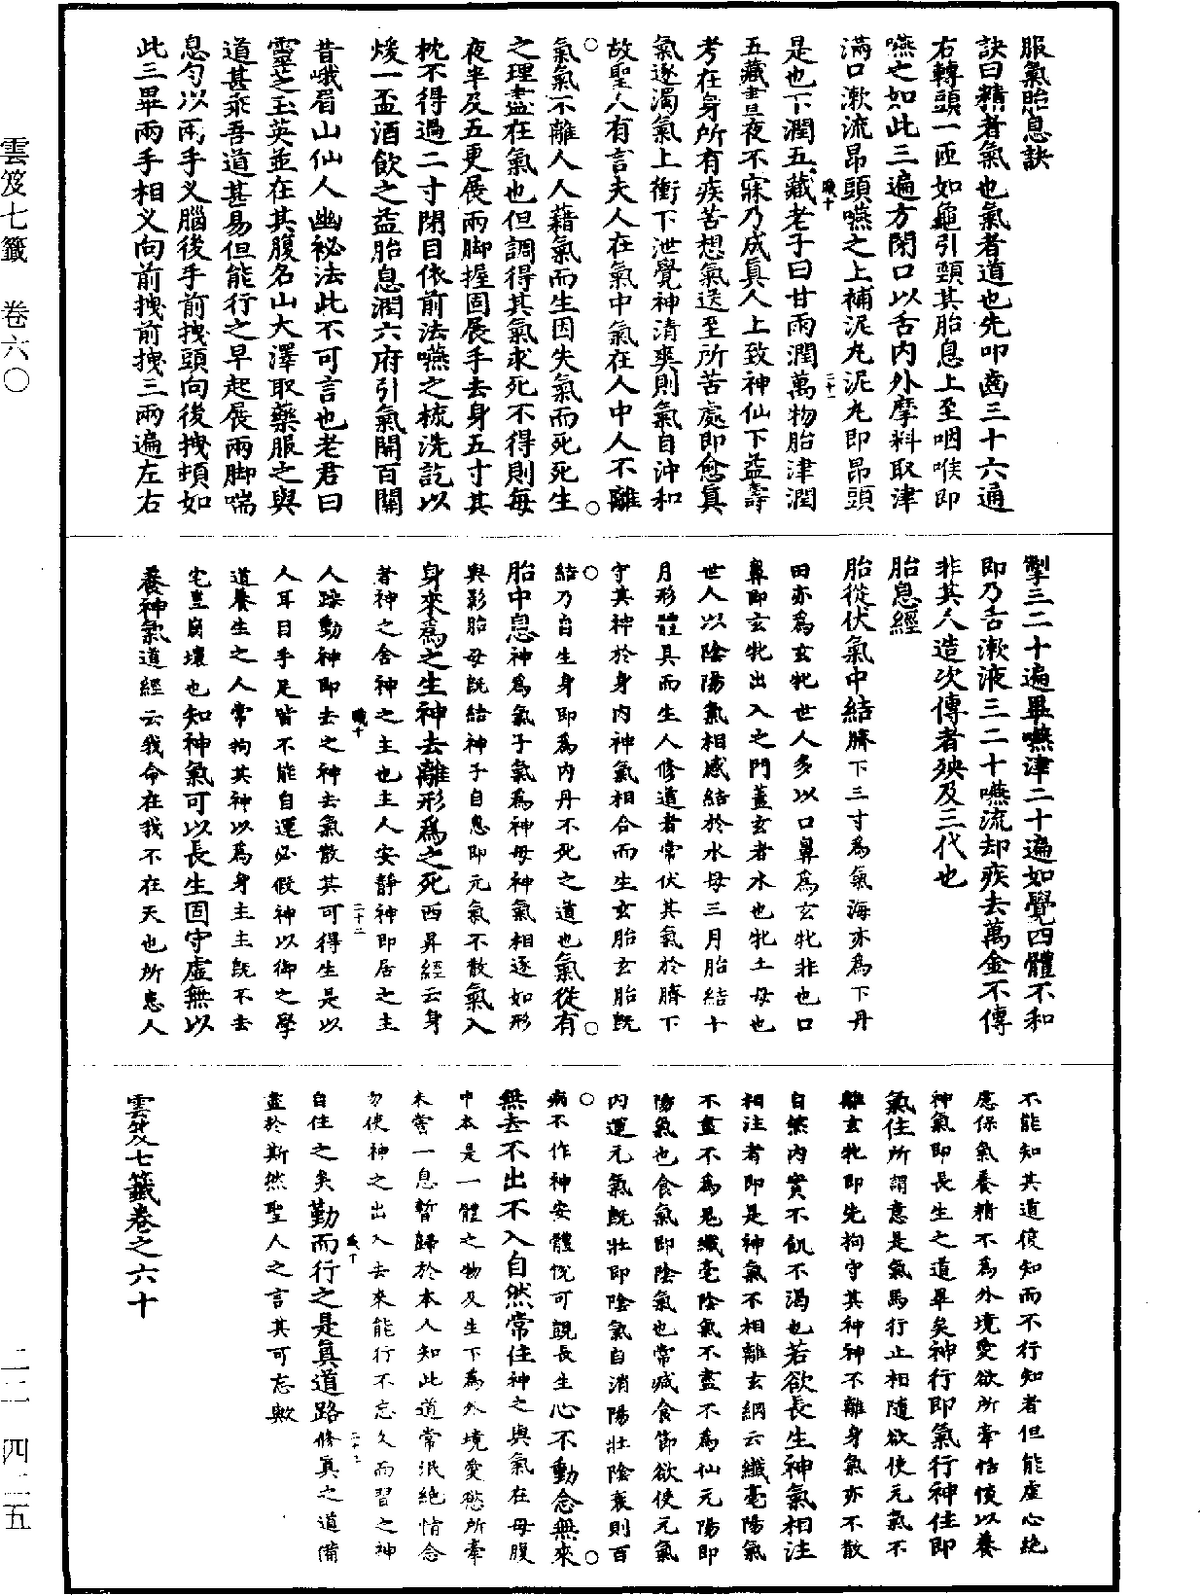 服氣胎息訣
訣曰精者氣也氣者道也先叩齒三十六通
右轉頭一匝如龜引頸其胎息上至咽喉即
嚥之如此三遍方閉口以舌內外摩料取津
滿口漱流昂頭嚥之上補泥丸泥丸即昂頭
是也下潤五藏老子曰甘雨潤萬物胎津潤
五藏晝夜不寐乃成真人上致神仙下益壽
考在身所有疾苦想氣送至所苦處即愈真
氣逐濁氣上衝下泄覺神清爽則氣自沖和
故聖人有言夫人在氣中氣在人中人不離
氣氣不離人人藉氣而生因失氣而死死生
之理盡在氣也但調得其氣求死不得則每
夜半及五更展兩脚握固展手去身五寸其
枕不得過二寸閉目依前法嚥之梳洗訖以
煖一盃酒飲之益胎息潤六府引氣開百關
昔峨眉山仙人幽祕法此不可言也老君曰
靈芝玉英並在其腹名山大澤取藥服之與
道甚乖吾道甚易但能行之早起展兩脚喘
息勻以兩手义腦後手前拽頭向後拽頓如
此三畢兩手相义向前拽前拽三兩遍左右
掣三二十遍畢嚥津二十遍如覺四體不和
即乃舌漱液三二十嚥流却疾去萬金不傳
非其人造次傳者殃及三代也
胎息經
胎從伏氣中結臍下三寸為氣海亦為下丹
田亦為玄牝世人多以口鼻為玄牝非也口
鼻即玄牝出入之門蓋玄者水也牝土母也
世人以陰陽氣相感結於水母三月胎結十
月形體具而生人修道者常伏其氣於臍下
守其神於身內神氣相合而生玄胎玄胎既
結乃自生身即為內丹不死之道也氣從有
胎中息神為氣子氣為神母神氣相逐如形
與影胎母既結神子自息即元氣不散氣入
身來為之生神去離形為之死西昇經云身
者神之舍神之主也主人安靜神即居之主
人躁動神即去之神去氣散其可得生是以
人耳目手足皆不能自運必假神以御之學
道養生之人常拘其神以為身主主既不去
宅豈崩壞也知神氣可以長生固守虛無以
養神氣道經云我命在我不在天也所患人
不能知其道復知而不行知者但能虛心絕
慮保氣養精不為外境愛欲所牽恬惔以養
神氣即長生之道畢矣神行即氣行神住即
氣住所謂意是氣馬行止相隨欲使元氣不
離玄牝即先拘守其神神不離身氣亦不散
自然內實不飢不渴也若欲長生神氣相注
相注者即是神氣不相離玄綱云纖毫陽氣
不盡不為鬼纖毫陰氣不盡不為仙元陽即
陽氣也食氣即陰氣也常減食節欲使元氣
內運元氣既壯即陰氣自消陽壯陰衰則百
病不作神安體悅可覬長生心不動念無來
無去不出不入自然常住神之與氣在母腹
中本是一體之物及生下為外境愛慾所牽
未嘗一息暫歸於本人知此道常泯絕情念
勿使神之出入去來能行不忘久而習之神
自住之矣勤而行之是真道路修真之道備
盡於斯然聖人之言其可忘歟
雲笈七籤卷之六十
雲笈七籤 卷六〇
二二 四二五